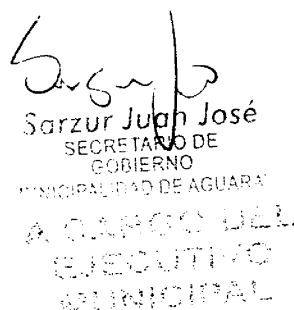 Sarzur Juan José
SECRETARIO DE
GOBIERNO
MUNICIPALIDAD DE AGUARA
A CARGO DEL
EJECUTIVO
MUNICIPAL